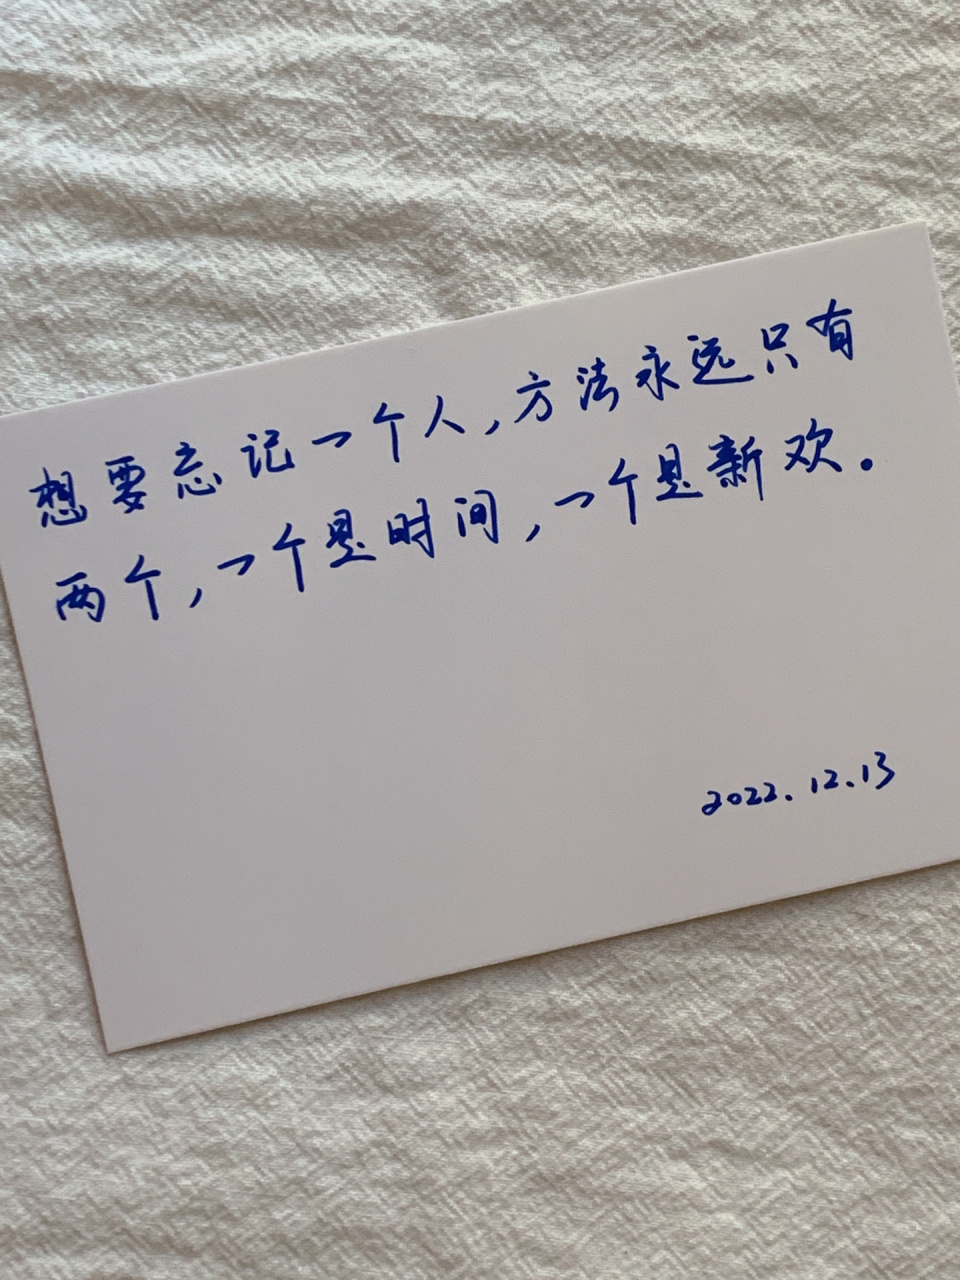 想要忘记一个人,方法永远只有
两个,一个是时间,一个是新欢。
2022.12.13